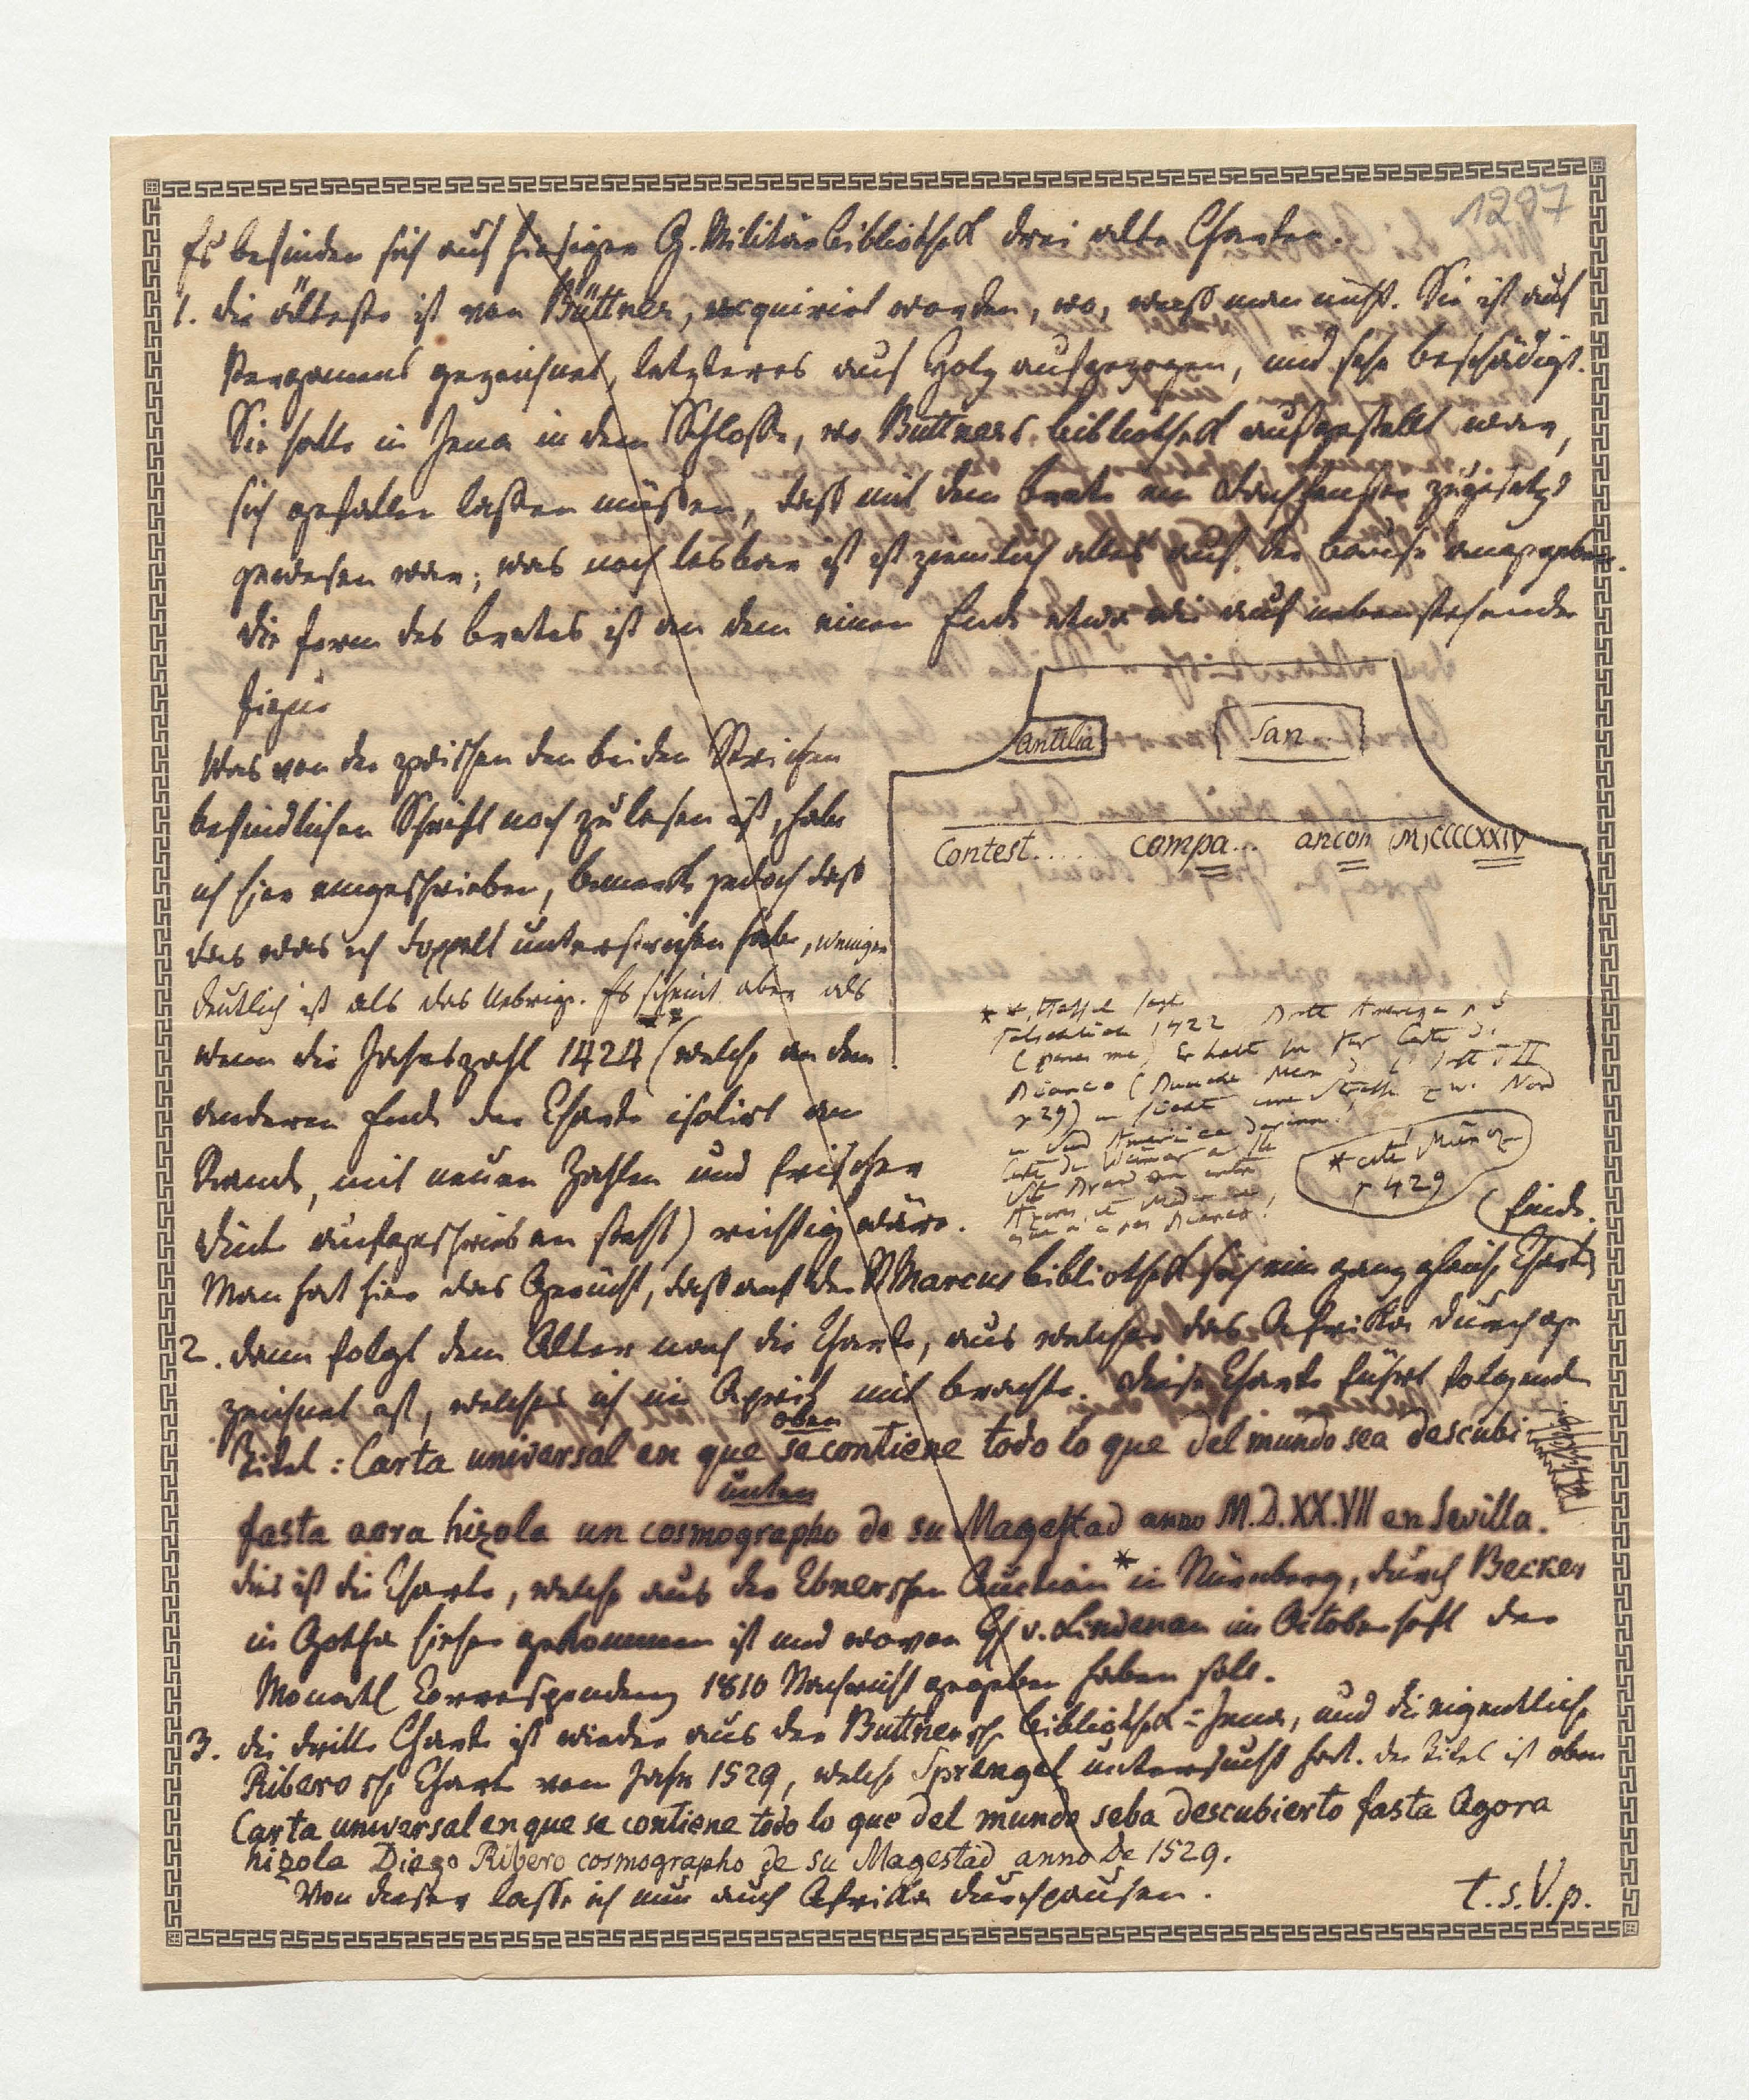 1297
Es befinden sich auf hiesiger G. Militärbibliothek drei alte Charten.
1. die älteste ist von Büttner, acquirirt worden, wo, weiß man nicht. Sie ist auf
Pergament gezeichnet, letzteres auf Holz aufgezogen, und sehr beschädigt.
Sie hatte in Jena in dem Schlosse, wo Büttners bibliothek aufgestellt war,
sich gefallen laßen müßen, daß mit dem brete ein Dachfenster zugesetzt
gewesen war; was noch lesbar ist ist ziemlich alles auf der bause angegeben.
die form des bretes ist an dem einen Ende etwa wie auf nebenstehender
figur
antilia
San..
Contest..... compa... ancon MCCCCXXIV
Was von der zwischen den beiden Strichen
befindlichen Schrift noch zu lesen ist, habe
ich hier eingeschrieben, bemerke jedoch daß
das was ich doppelt unterstrichen habe, weniger
deutlich ist als das Uebrige. Es scheint aber als
wenn die Jahreszahl 1424 (welche an dem
**
anderen Ende der Charte isolirt am
Rande, mit neuen Zahlen und frischer
Dinte aufgeschrieben steht) richtig wäre.
** Hassel sagt
1422
America
* cite Münoz
p 429
Man hat hier das Gerücht, daß auf der St Marcus bibliothek sich eine ganz gleiche Charte
(finde.
2. dann folgt dem Alter nach die Charte, aus welcher das Afrika durchge
zeichnet ist, welches ich im April mit brachte. diese Charte führt folgenden
oben
Titel: Carta universal en que se contiene todo lo que del mundo sea descubi
unten
fasta aora hizola un cosmographo de su Magestad anno M.D.XX.VII en Sevilla.
dies ist die Charte, welche aus der Ebnerschen Auction * in Nürnberg, durch Becker
in Gotha hieher gekommen ist und wovon H v. Lindenau im Octoberheft der
Monatl Correspondenz 1810 Nachricht gegeben haben soll.
3. die dritte Charte ist wieder aus der Büttnersch bibliothek = Jena, und die eigentliche
Riberosche Charte vom Jahr 1529, welche Sprengel untersucht hat. der Titel ist oben
Carta universal en que se contiene todo lo que del mundo seba descubierto fasta Agora
hizola Diego Ribero cosmographo de su Magestad anno De 1529.
Von dieser lasse ich nun auch Afrika durchpausen.
t.s.V.p.